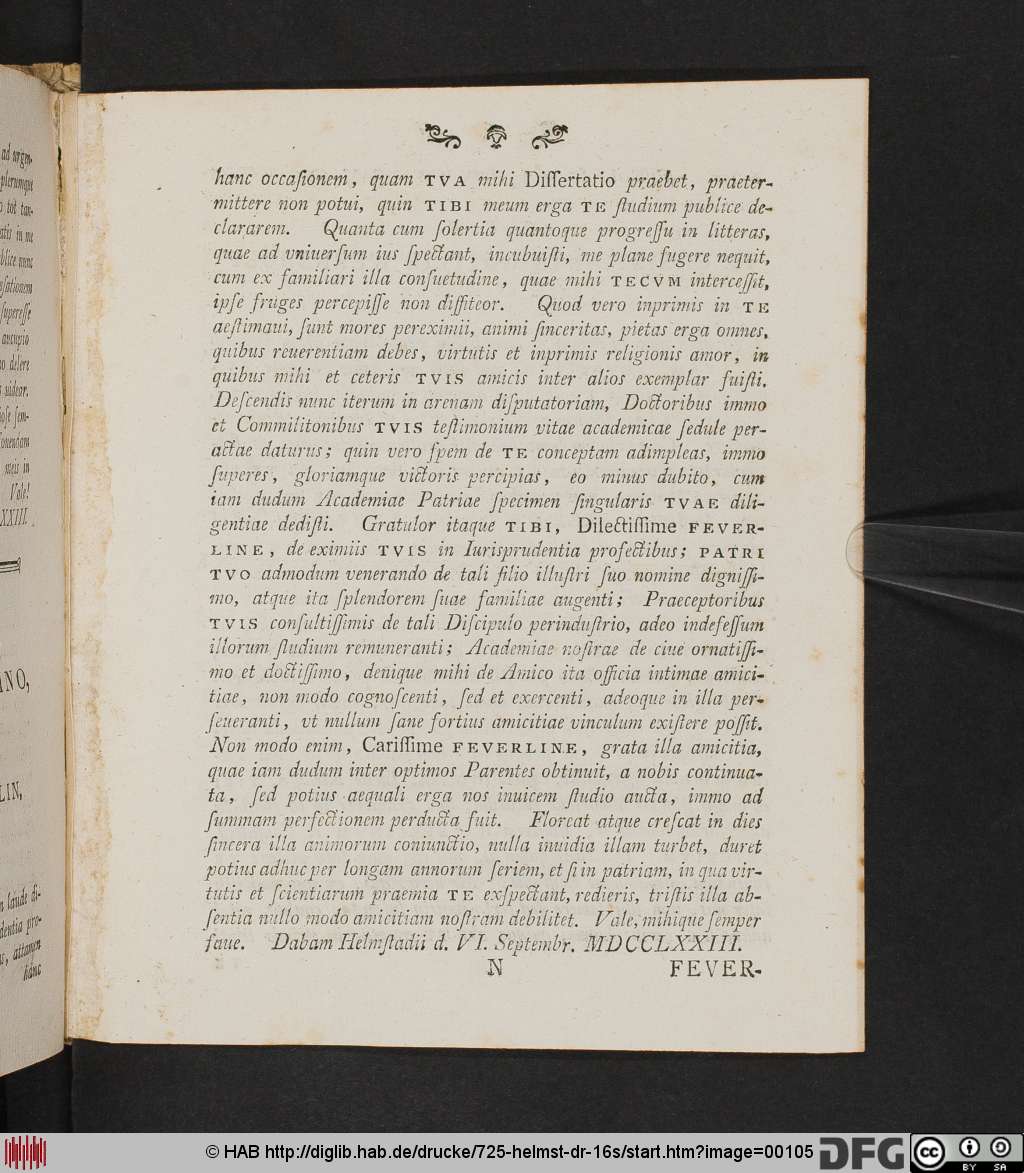 hanc occaſionem, quam TVA mihi Diſſertatio praebet, praeter-
mittere non potui, quin TIBI meum erga TE ſtudium publice de-
clararem. Quanta cum ſolertia quantoque progreſſu in litteras,
quae ad vniuerſum ius ſpectant, incubuiſti, me plane fugere nequit,
cum ex familiari illa conſuetudine, quae mihi TECVM interceſſit,
ipſe fruges percepiſſe non diffiteor. Quod vero inprimis in TE
aeſtimaui, ſunt mores pereximii, animi ſinceritas, pietas erga omnes,
quibus reuerentiam debes, virtutis et inprimis religionis amor, in
quibus mihi et ceteris TVIS amicis inter alios exemplar fuiſti.
Deſcendis nunc iterum in arenam diſputatoriam, Doctoribus immo
et Commilitonibus TVIS teſtimonium vitae academicae ſedule per-
actae daturus; quin vero ſpem de TE conceptam adimpleas, immo
ſuperes, gloriamque victoris percipias, eo minus dubito, cum
iam dudum Academiae Patriae ſpecimen ſingularis TVAE dili-
gentiae dediſti. Gratulor itaque TIBI, Dilectiſſime FEVER-
LINE, de eximiis TVIS in Iurisprudentia profectibus; PATRI
TVO admodum venerando de tali filio illuſtri ſuo nomine digniſſi-
mo, atque ita ſplendorem ſuae familiae augenti; Praeceptoribus
TVIS conſultiſſimis de tali Diſcipulo perinduſtrio, adeo indefeſſum
illorum ſtudium remuneranti; Academiae noſtrae de ciue ornatiſſi-
mo et doctiſſimo, denique mihi de Amico ita officia intimae amici-
tiae, non modo cognoſcenti, ſed et exercenti, adeoque in illa per-
ſeueranti, vt nullum ſane fortius amicitiae vinculum exiſtere poſſit.
Non modo enim, Cariſſime FEVERLINE, grata illa amicitia,
quae iam dudum inter optimos Parentes obtinuit, a nobis continua-
ta, ſed potius aequali erga nos inuicem ſtudio aucta, immo ad
ſummam perfectionem perducta fuit. Floreat atque creſcat in dies
ſincera illa animorum coniunctio, nulla inuidia illam turbet, duret
potius adhuc per longam annorum ſeriem, et ſi in patriam, in qua vir-
tutis et ſcientiarum praemia TE exſpectant, redieris, triſtis illa ab-
ſentia nullo modo amicitiam noſtram debilitet. Vale, mihique ſemper
faue. Dabam Helmſtadii d. VI. Septembr. MDCCLXXIII.
N FEVER-
ad
plerumque
tot tan-
in me
nunc
ſuperſſe
aucupio
delere
uidear.
ſem-
meis in
Vale!
XXIII.
ANO,
LIN,
laude di-
pro-
attamen
hanc
© HAB http://diglib.hab.de/drucke/725-helmst-dr-16s/start.htm?image=00105
DFG
cc
BY SA